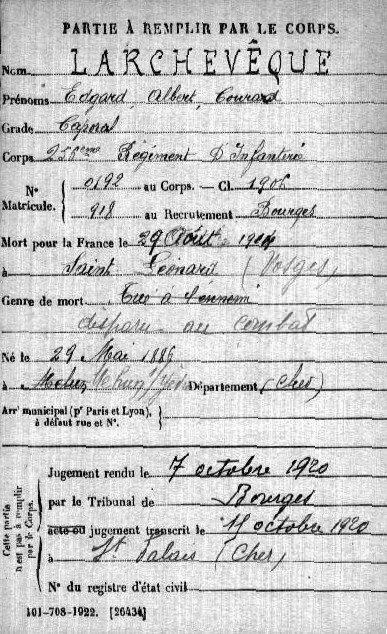 PARTIE À REMPLIR PAR LE CORPS.
Nom LARCHEVÊQUE
Prénoms Edgard, Albert, Conrad
Grade Caporal
Corps 256ème Régiment D'Infanterie
N° Matricule. { 0192 au Corps. — Cl. 1906
918 au Recrutement Bourges
Mort pour la France le 29 Août 1914
à Saint Léonard (Vosges)
Genre de mort Tué à l'ennemi
disparu au combat
Né le 29 Mai 1886
à Mehun s/Yèvre Département (Cher)
Arr<sup>t</sup> municipal (p<sup>r</sup> Paris et Lyon), à défaut rue et N°. }
Cette partie n'est pas à remplir par le Corps.
Jugement rendu le 7 octobre 1920
par le Tribunal de Bourges
acte ou jugement transcrit le 11 octobre 1920
à St Palais (Cher)
N° du registre d'état civil
101-708-1922. [26434]